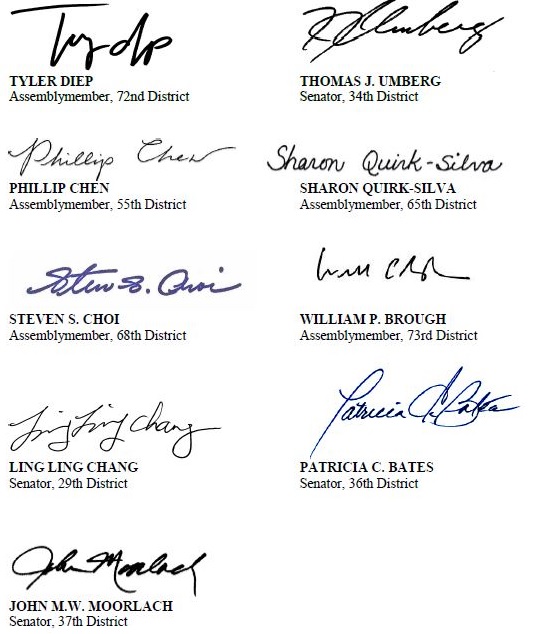 Ty dp
TYLER DIEP
Assemblymember, 72nd District
Umberg
THOMAS J. UMBERG
Senator, 34th District
Phillip Chen
PHILLIP CHEN
Assemblymember, 55th District
Sharon Quirk-Silva
SHARON QUIRK-SILVA
Assemblymember, 65th District
Steven S. Choi
STEVEN S. CHOI
Assemblymember, 68th District
WILLIAM P. BROUGH
Assemblymember, 73rd District
Ling Ling Chang
LING LING CHANG
Senator, 29th District
Patricia C. Bates
PATRICIA C. BATES
Senator, 36th District
John Moorlach
JOHN M.W. MOORLACH
Senator, 37th District